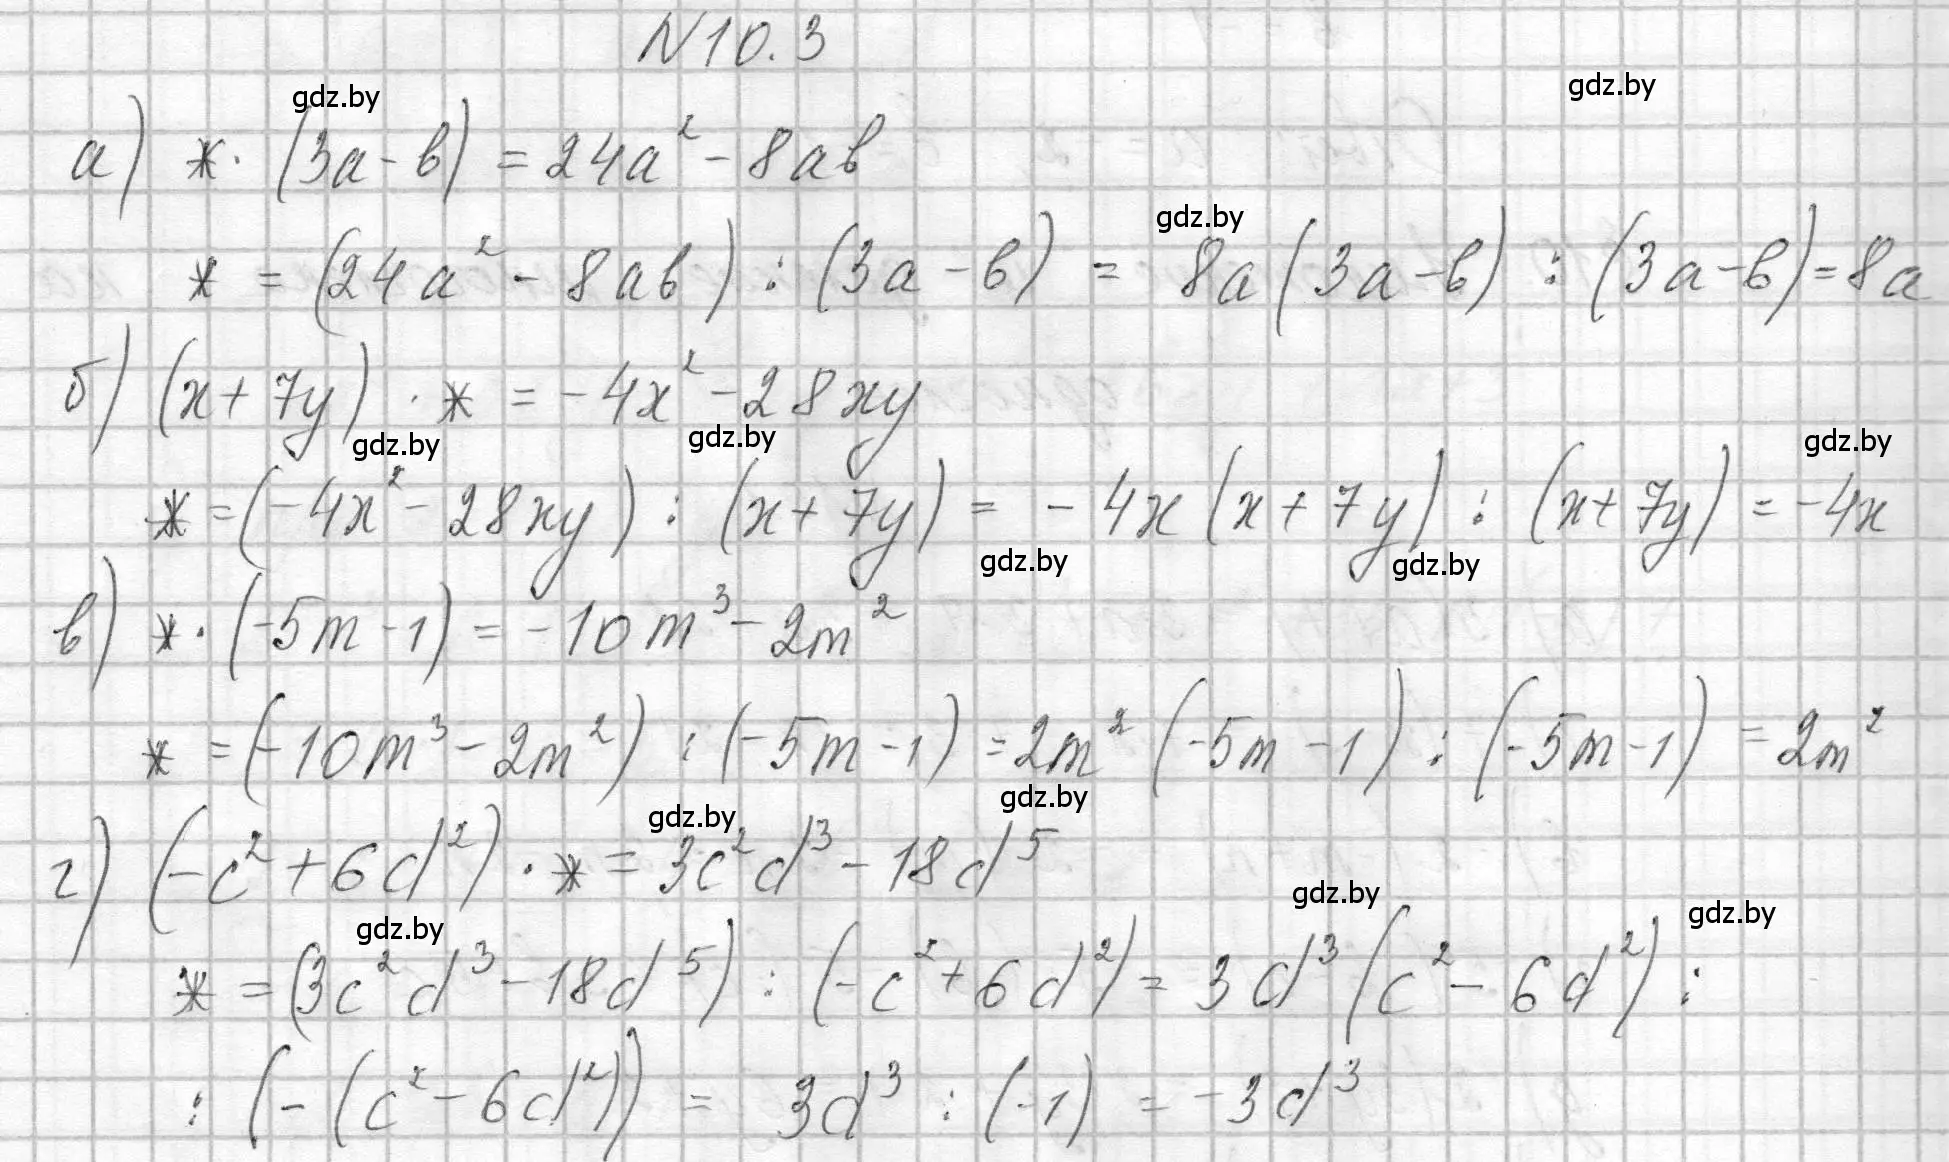 N10.3
gdz.by
gdz.by
а) * · (3a - b) = 24a² - 8ab
gdz.by
* = (24a² - 8ab) : (3a - b) = 8a(3a - b) : (3a - b) = 8a
б) (x + 7y) · * = -4x² - 28xy
gdz.by
gdz.by
gdz.by
* = (-4x² - 28xy) : (x + 7y) = -4x(x + 7y) : (x + 7y) = -4x
gdz.by
gdz.by
в) * · (-5m - 1) = -10m³ - 2m²
* = (-10m³ - 2m²) : (-5m - 1) = 2m²(-5m - 1) : (-5m - 1) = 2m²
gdz.by
gdz.by
г) (-c² + 6d²) · * = 3c²d³ - 18d⁵
gdz.by
gdz.by
gdz.by
* = (3c²d³ - 18d⁵) : (-c² + 6d²) = 3d³(c² - 6d²) :
: (-(c² - 6d²)) = 3d³ : (-1) = -3d³